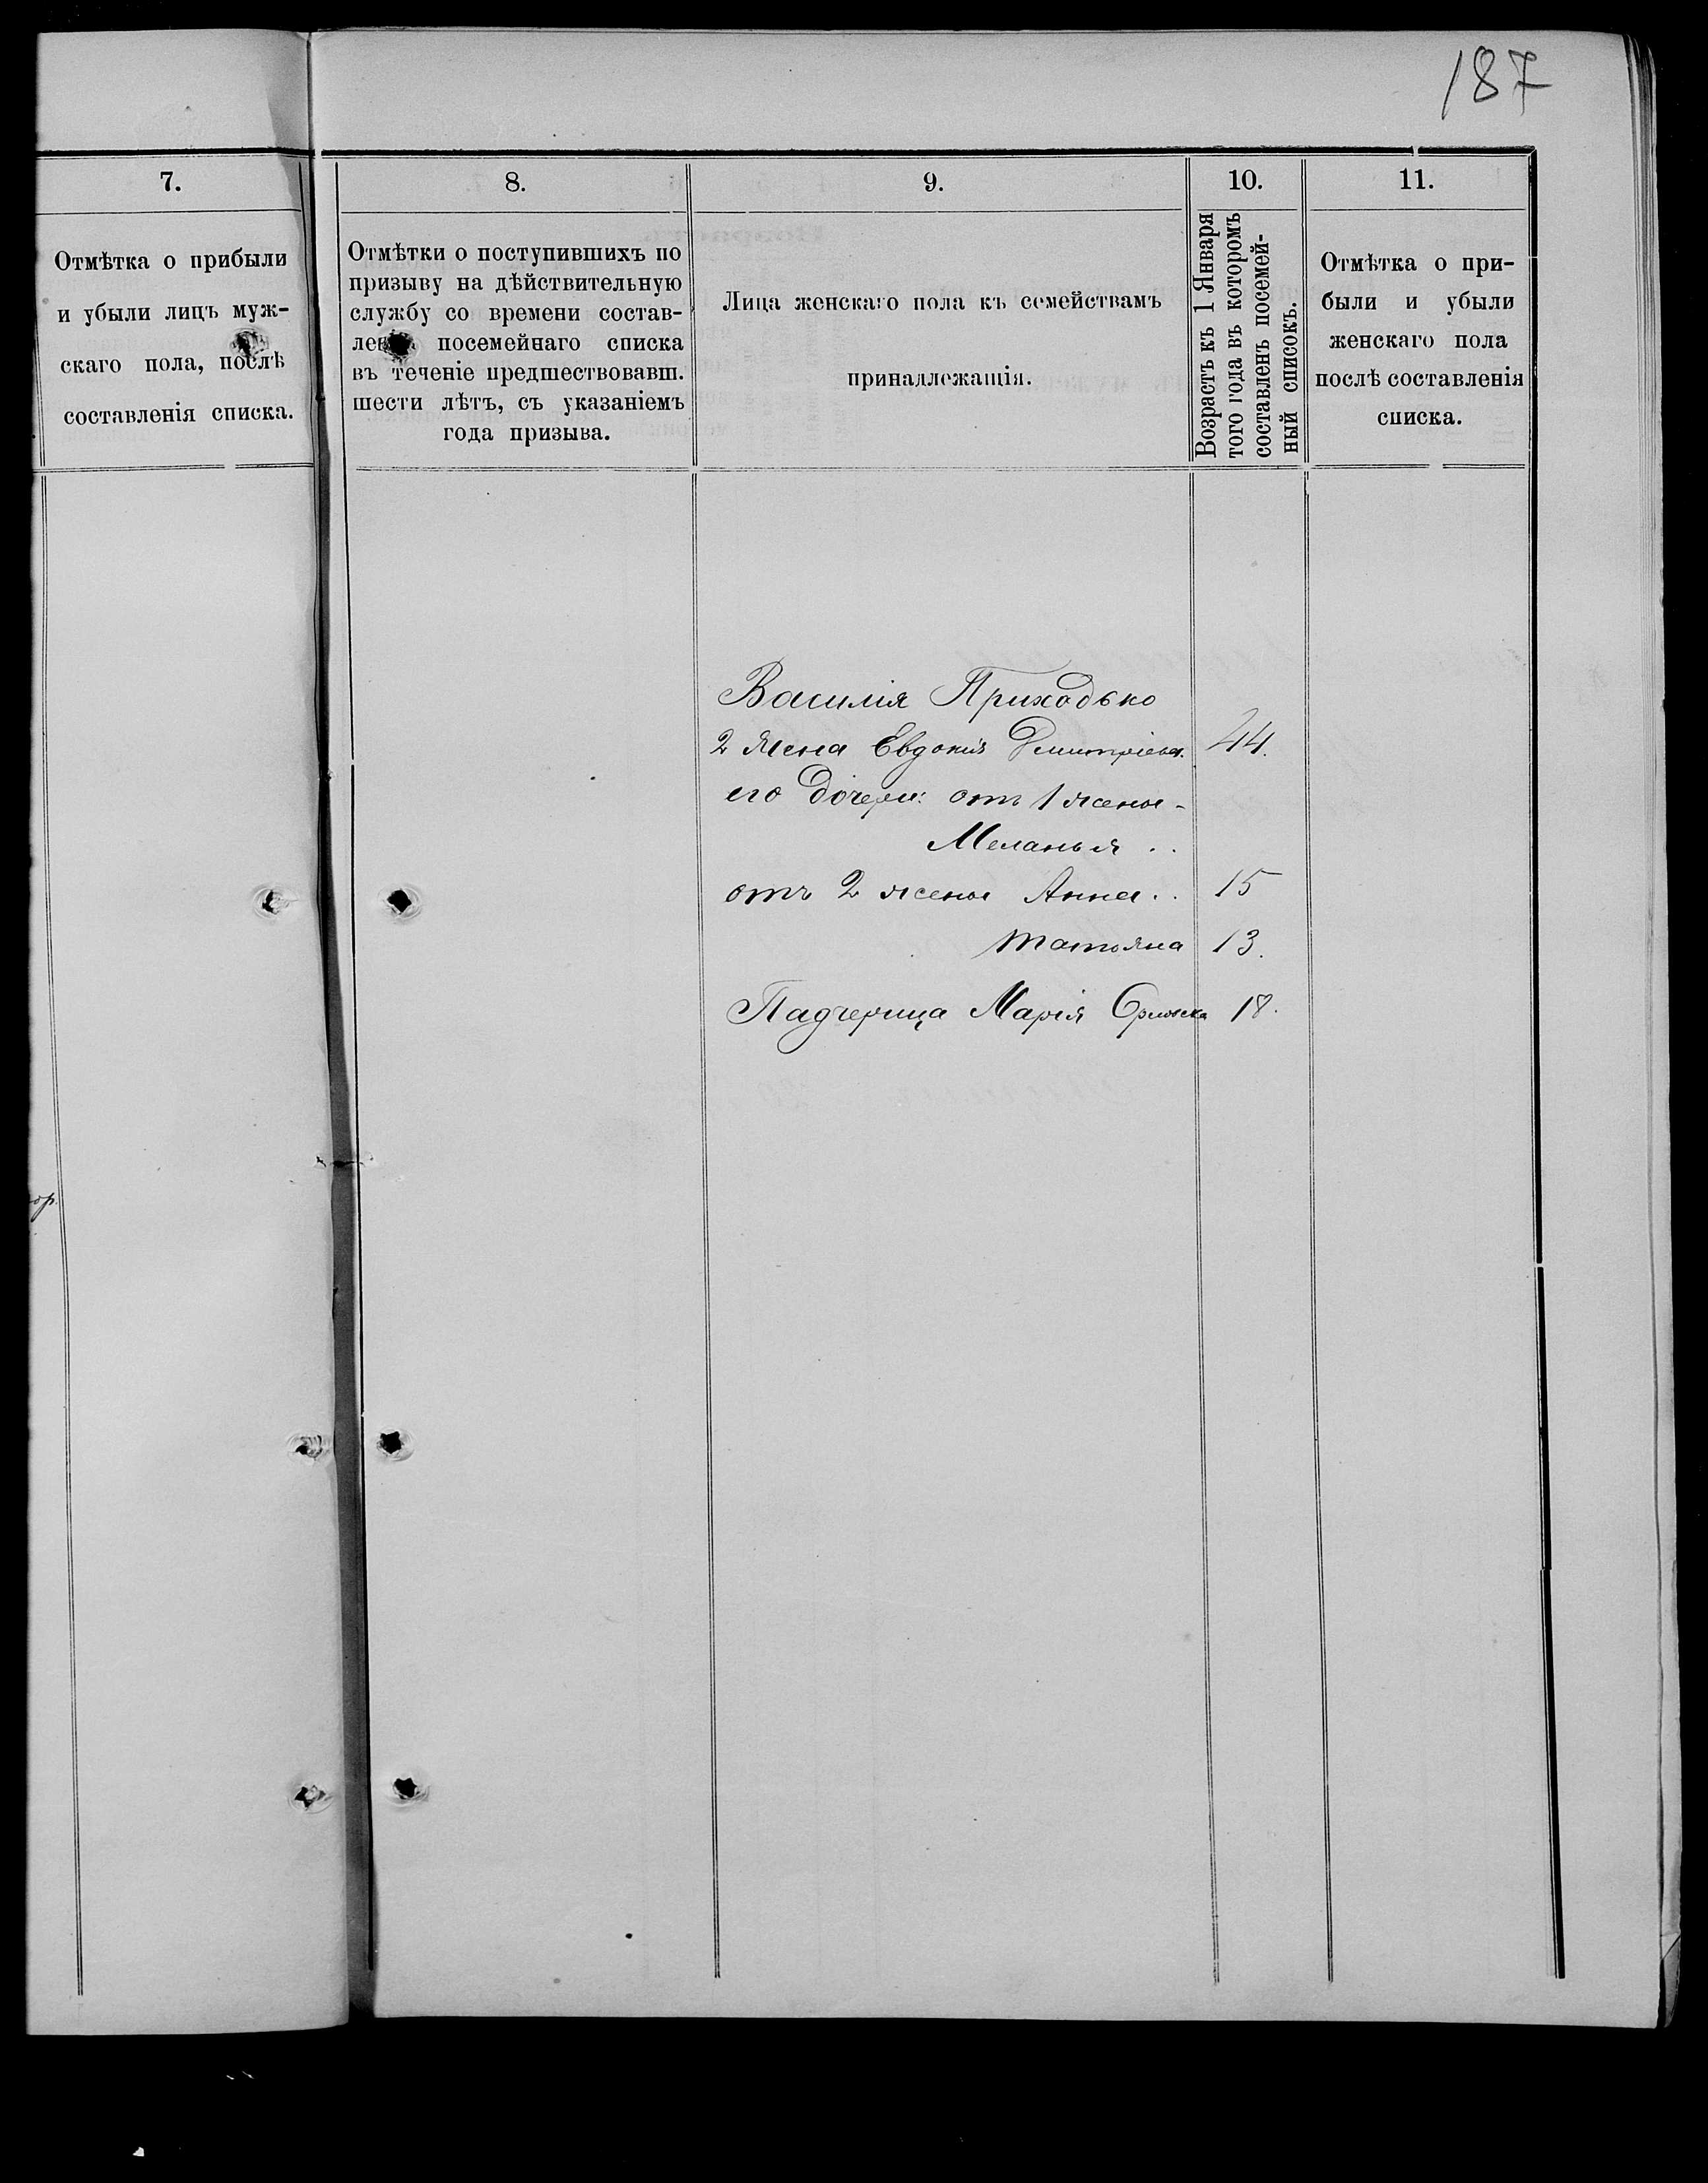 187
7.
8.
9.
10.
11.
Отмѣтка о прибыли
и убыли лицъ муж-
скаго пола, послѣ
составленія списка.
Отмѣтки о поступившихъ по
призыву на дѣйствительную
службу со времени состав-
посемейнаго списка
въ теченіе предшествовавш.
шести лѣтъ, съ указаніемъ
года призыва.
Лица женскаго пола къ семействамъ
принадлежащія.
Возрастъ къ 1 Января
того года въ которомъ
составленъ посемей-
ный списокъ.
Отмѣтка о при-
были и убыли
женскаго пола
послѣ составленія
списка.
Василія Приходько
2 жена Евдокія Дмитріева. 44.
его дочери: отъ 1 жены -
Меланья ..
отъ 2 жены Анна .. 15
Татьяна 13.
Падчерица Марія 18.
ор.